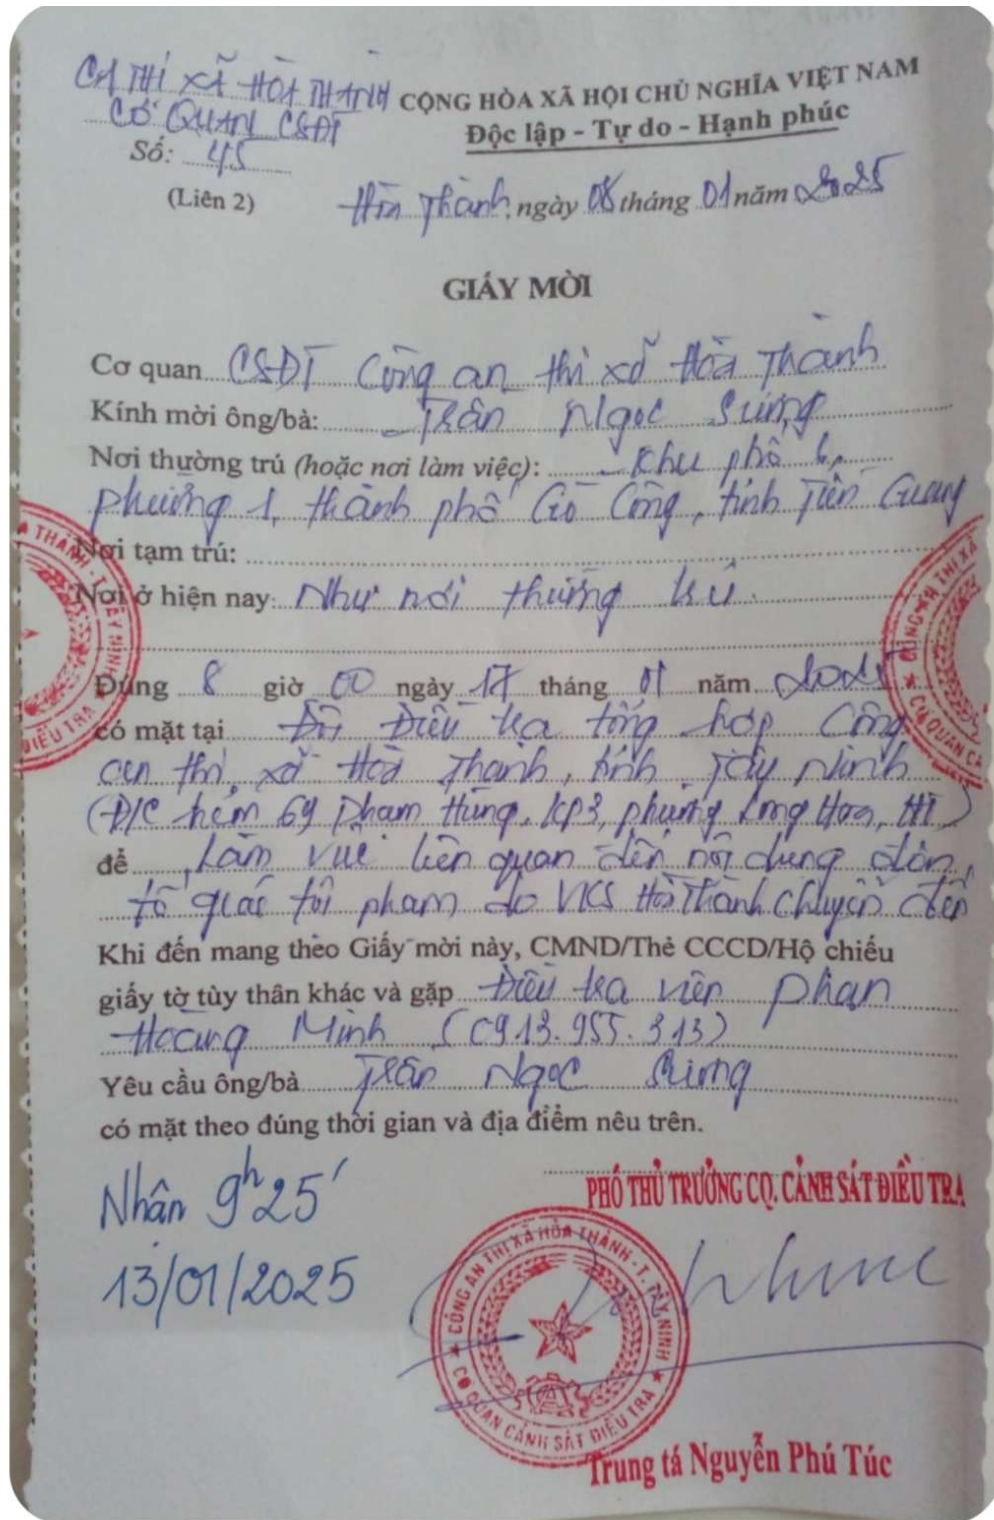 CA THỊ XÃ HÒA THÀNH
CƠ QUAN CSĐT
Số: 45
(Liên 2)
CỘNG HÒA XÃ HỘI CHỦ NGHĨA VIỆT NAM
Độc lập - Tự do - Hạnh phúc
Hòa Thành, ngày 08 tháng 01 năm 2025
GIẤY MỜI
Cơ quan CSĐT Công an thị xã Hòa Thành
Kính mời ông/bà: Trần Ngọc Sương
Nơi thường trú (hoặc nơi làm việc): Khu phố 6,
phường 1, thành phố Gò Công, tỉnh Tiền Giang
Nơi tạm trú:
Nơi ở hiện nay: Như nơi thường trú.
Đúng 8 giờ 00 ngày 17 tháng 01 năm 2025
có mặt tại Đội Điều tra tổng hợp Công
an thị xã Hòa Thành, tỉnh Tây Ninh
(Đ/C hẻm 69 Phạm Hùng, KP3, phường Long Hoa, HT)
để Làm việc liên quan đến nội dung đơn
tố giác tội phạm do VKS Hòa Thành chuyển đến
Khi đến mang theo Giấy mời này, CMND/Thẻ CCCD/Hộ chiếu
giấy tờ tùy thân khác và gặp Điều tra viên Phan
Hoàng Minh (0913.955.313)
Yêu cầu ông/bà Trần Ngọc Sương
có mặt theo đúng thời gian và địa điểm nêu trên.
Nhận 9h25'
13/01/2025
PHÓ THỦ TRƯỞNG CQ. CẢNH SÁT ĐIỀU TRA
CÔNG AN THỊ XÃ HÒA THÀNH - T. TÂY NINH
CƠ QUAN CẢNH SÁT ĐIỀU TRA
Trung tá Nguyễn Phú Túc